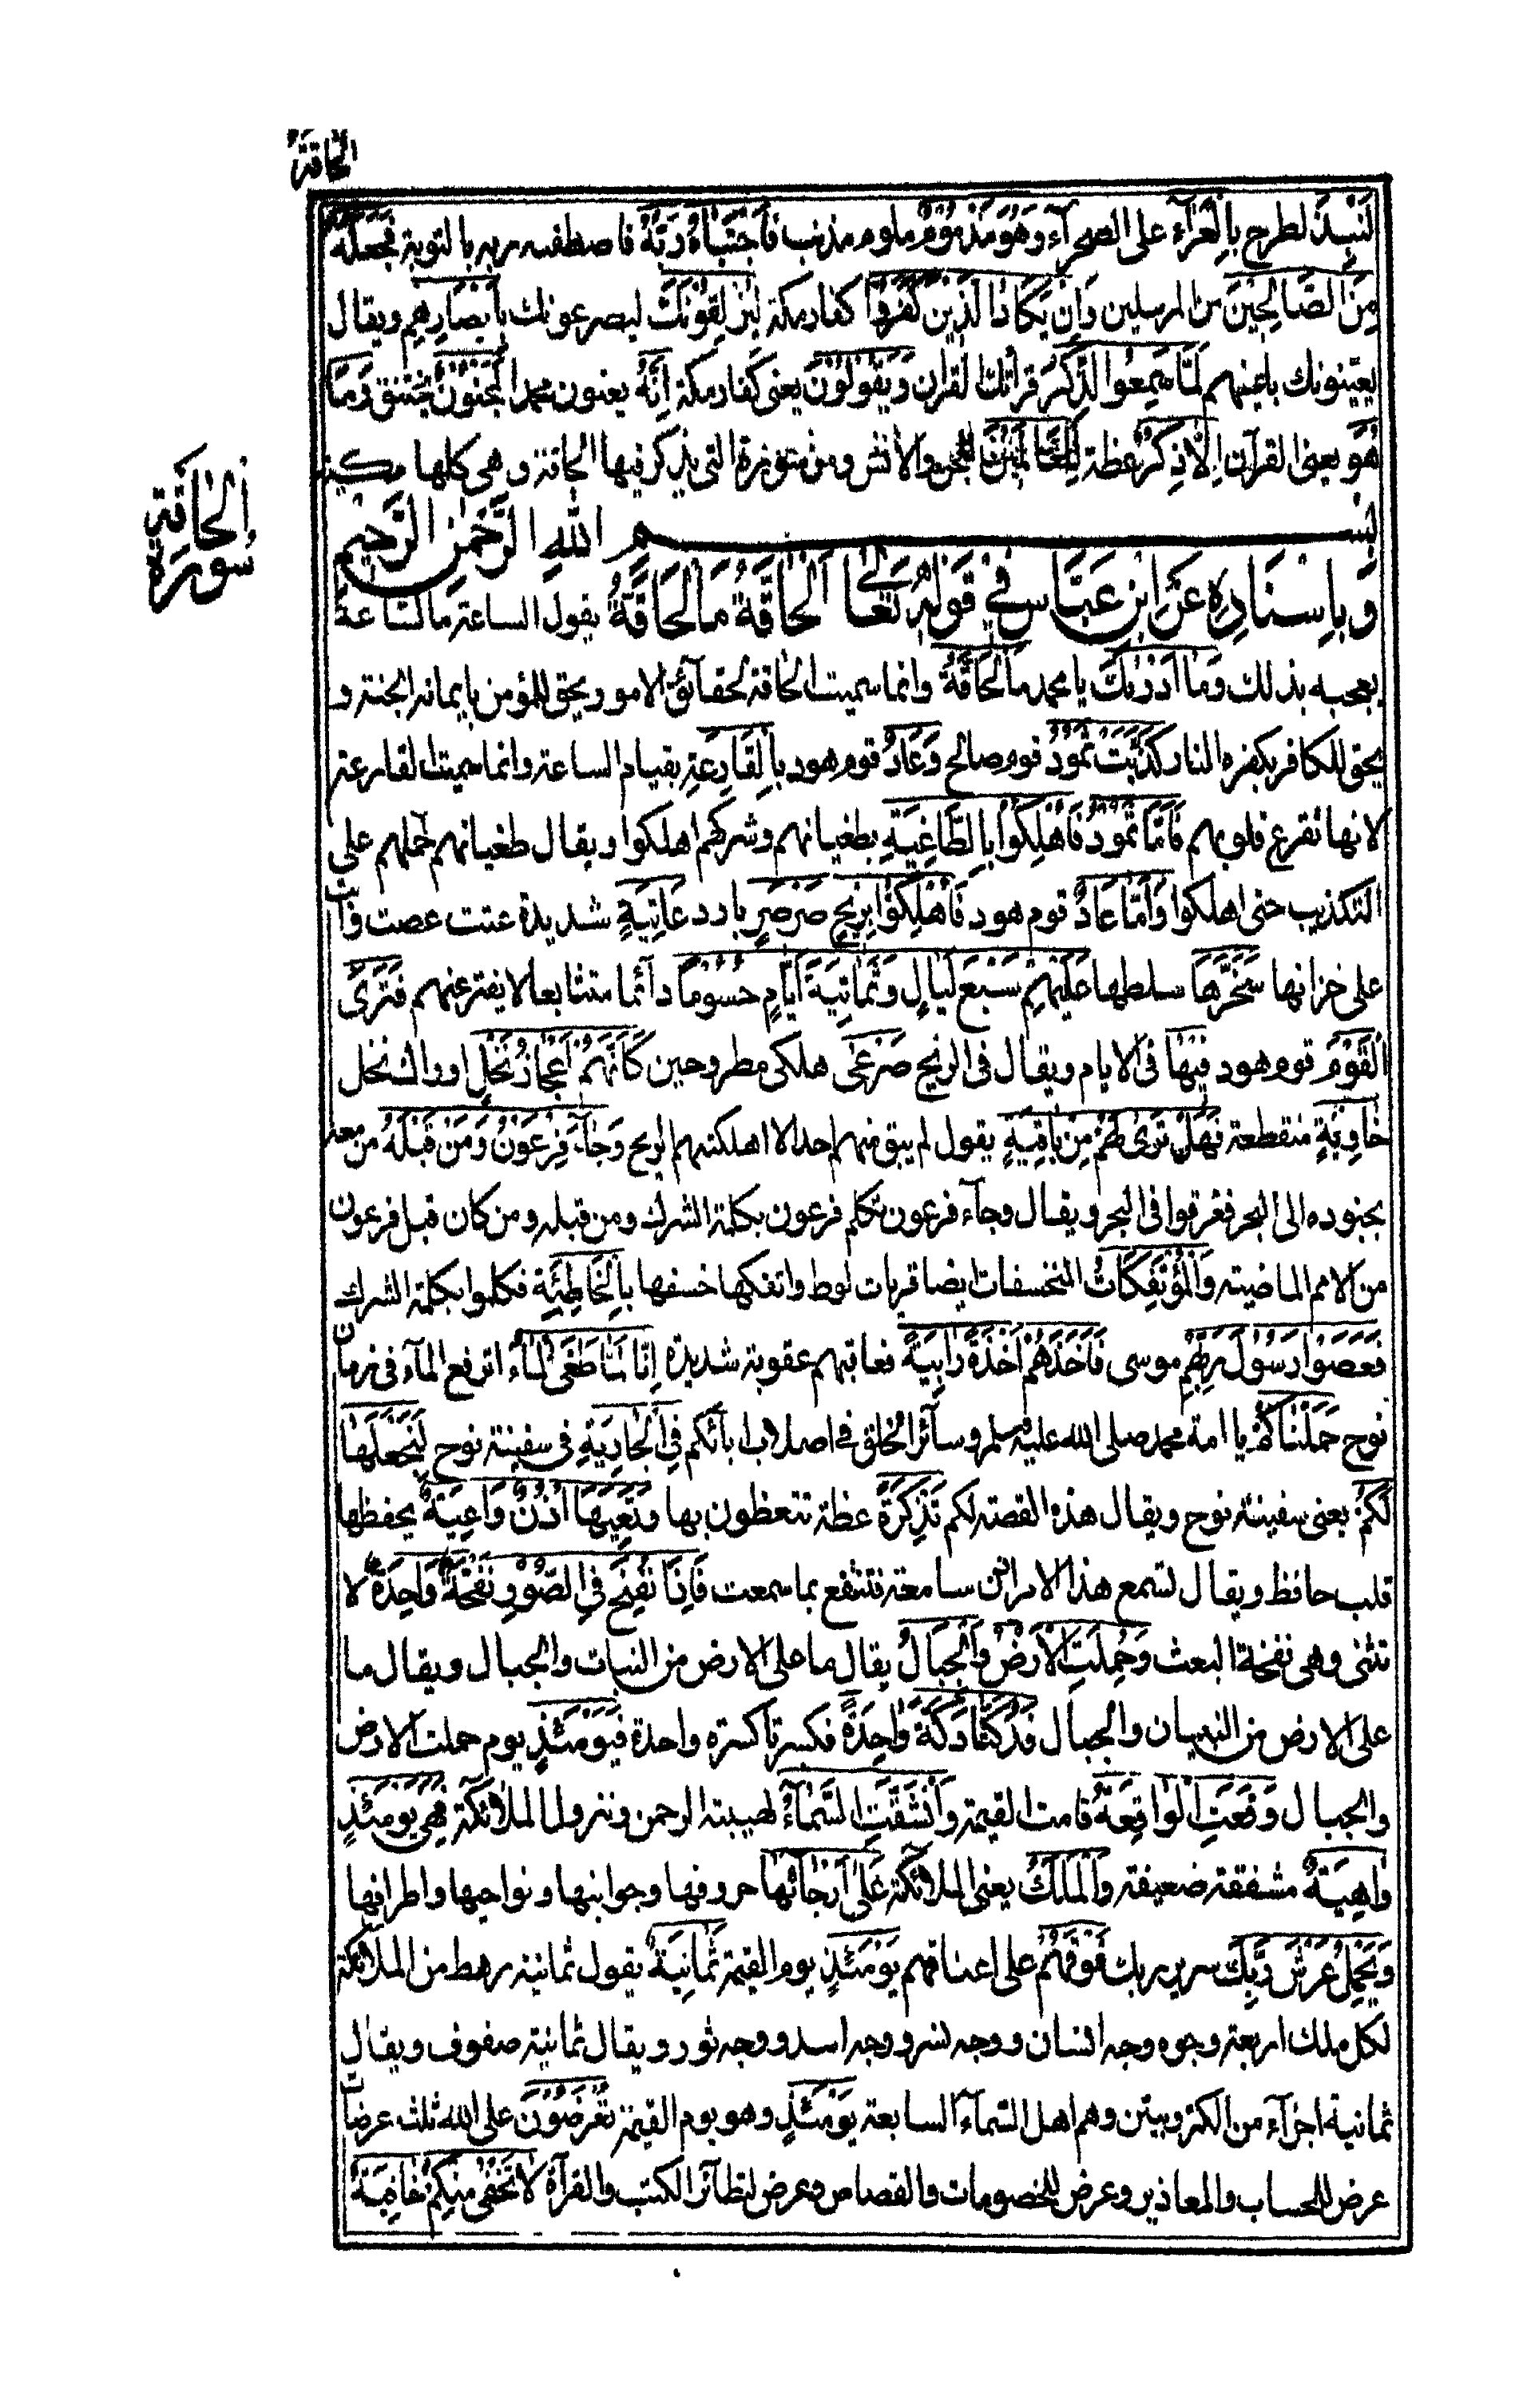 الحاقة
لَنُبِذَ لطرح بِالْعَرَآءِ على الصحرآء وَهُوَ مَذْمُوْمٌ ملوم مذنب فَاجْتَبَاهُ رَبُّهُ فاصطفىه ربه بالتوبة فَجَعَلَهُ
مِنَ الصَّالِحِيْنَ من المرسلين وَاِنْ يَكَادُ الَّذِيْنَ كَفَرُوْا كفار مكة لَيُزْلِقُوْنَكَ ليصرعونك بِاَبْصَارِهِمْ ويقال
يعينونك باعينهم لَمَّا سَمِعُوا الذِّكْرَ قراتك القران وَيَقُوْلُوْنَ يعنى كفار مكة اِنَّهُ يعنون محمدا لَمَجْنُوْنٌ يختنق وَمَا
هُوَ يعنى القرآن اِلَّا ذِكْرٌ عظة لِّلْعَالَمِيْنَ للجن والانس ومن سورة التى يذكر فيها الحاقة وهى كلها مكية
بِسْمِ اللهِ الرَّحْمٰنِ الرَّحِيْمِ
سورة الحاقة
وَبِاِسْنَادِهِ عَنِ ابْنِ عَبَّاسٍ فِيْ قَوْلِهِ تَعَالٰى اَلْحَاقَّةُ مَا الْحَاقَّةُ يقول الساعة ما الساعة
يعجبه بذلك وَمَا اَدْرٰىكَ يا محمد مَا الْحَاقَّةُ وانما سميت الحاقة لحقائق الامور يحق للمؤمن بايمانه الجنة و
يحق للكافر بكفره النار كَذَّبَتْ ثَمُوْدُ قوم صالح وَعَادٌ قوم هود بِالْقَارِعَةِ بقيام الساعة وانما سميت القارعة
لانها تقرع قلوبهم فَاَمَّا ثَمُوْدُ فَاُهْلِكُوْا بِالطَّاغِيَةِ بطغيانهم وشركهم اهلكوا ويقال طغيانهم حملهم على
التكذيب حتى اهلكوا وَاَمَّا عَادٌ قوم هود فَاُهْلِكُوْا بِرِيْحٍ صَرْصَرٍ بارد عَاتِيَةٍ شديدة عتت عصت وابت
على خزانها سَخَّرَهَا سلطها عَلَيْهِمْ سَبْعَ لَيَالٍ وَثَمَانِيَةَ اَيَّامٍ حُسُوْمًا دآئما متتابعا لا يفتر عنهم فَتَرَى
الْقَوْمَ قوم هود فِيْهَا فى الايام ويقال فى الريح صَرْعٰى هلكى مطروحين كَاَنَّهُمْ اَعْجَازُ نَخْلٍ اوراك نخل
خَاوِيَةٍ منقطعة فَهَلْ تَرٰى لَهُمْ مِنْ بَاقِيَةٍ يقول لم يبق منهم احد الا اهلكتهم الريح وَجَآءَ فِرْعَوْنُ وَمَنْ قَبْلَهُ من معه
بجنوده الى البحر فغرقوا فى البحر ويقال وجآء فرعون تكلم فرعون بكلمة الشرك ومن قبله ومن كان قبل فرعون
من الامم الماضية وَالْمُؤْتَفِكَاتُ المنخسفات ايضا قريات لوط وائتفكها خسفها بِالْخَاطِئَةِ فكلموا بكلمة الشرك
فَعَصَوْا رَسُوْلَ رَبِّهِمْ موسى فَاَخَذَهُمْ اَخْذَةً رَابِيَةً فعاقبهم عقوبة شديدة اِنَّا لَمَّا طَغَى الْمَاءُ ارتفع المآء فى زمان
نوح حَمَلْنَاكُمْ يا امة محمد صلى الله عليه وسلم وسآئر الخلق فى اصلاب ابآئكم فِى الْجَارِيَةِ فى سفينة نوح لِنَجْعَلَهَا
لَكُمْ يعنى سفينة نوح ويقال هذه القصة لكم تَذْكِرَةً عظة تتعظون بها وَتَعِيَهَا اُذُنٌ وَاعِيَةٌ يحفظها
قلب حافظ ويقال لتسمع هذا الامر اذن سامعة فتنتفع بما سمعت فَاِذَا نُفِخَ فِى الصُّوْرِ نَفْخَةٌ وَاحِدَةٌ لا
تثنى وهى نفخة البعث وَحُمِلَتِ الْاَرْضُ وَالْجِبَالُ يقال ما على الارض من النبات والجبال ويقال ما
على الارض من البنيان والجبال فَدُكَّتَا دَكَّةً وَاحِدَةً فكسرتا كسرة واحدة فَيَوْمَئِذٍ يوم حملت الارض
والجبال وَقَعَتِ الْوَاقِعَةُ قامت القيمة وَانْشَقَّتِ السَّمَآءُ لهيبة الرحمن ونزول الملائكة فَهِىَ يَوْمَئِذٍ
وَاهِيَةٌ مشققة ضعيفة وَالْمَلَكُ يعنى الملائكة عَلٰى اَرْجَآئِهَا حروفها وجوانبها ونواحيها واطرافها
وَيَحْمِلُ عَرْشَ رَبِّكَ سرير ربك فَوْقَهُمْ على اعناقهم يَوْمَئِذٍ يوم القيمة ثَمَانِيَةٌ يقول ثمانية رهط من الملائكة
لكل ملك اربعة وجوه وجه انسان ووجه نسر ووجه اسد ووجه ثور ويقال ثمانية صفوف ويقال
ثمانية اجزآء من الكروبيين وهم اهل السمآء السابعة يَوْمَئِذٍ وهو يوم القيمة تُعْرَضُوْنَ على الله ثلث عرضات
عرض للحساب والمعاذير وعرض للخصومات والقصاص وعرض لتطآئر الكتب والقرآة لَا تَخْفٰى مِنْكُمْ خَافِيَةٌ